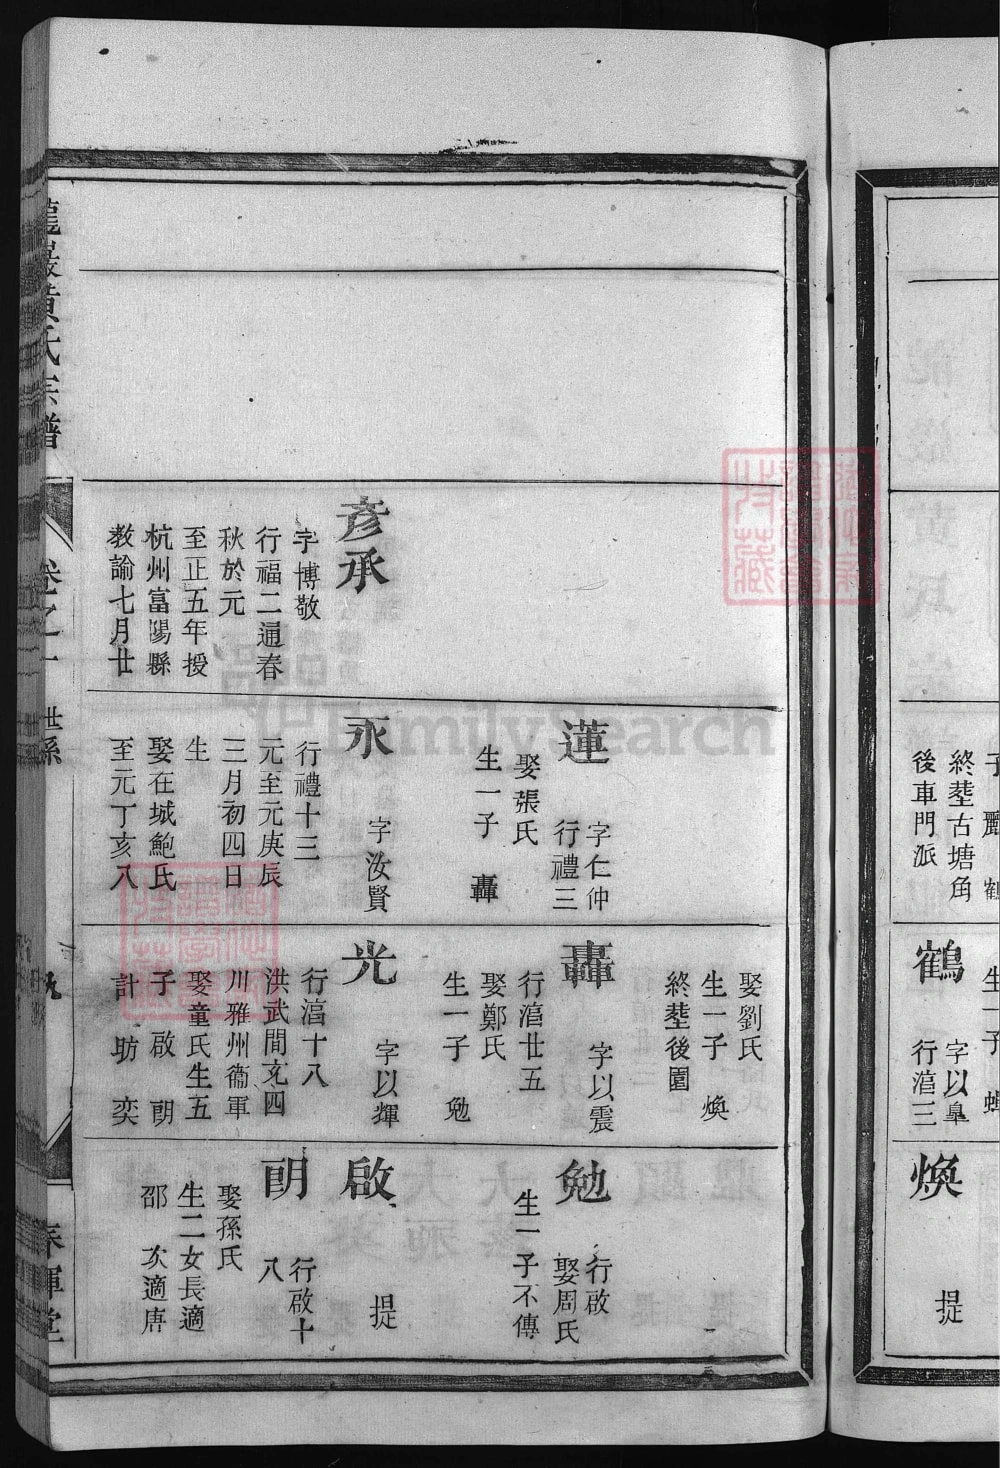 子麗 鶴
終塟古塘角
後車門派
生一子
鶴 字以臯
行湻三
煥 提
彥承
字博敬
行福二通春
秋於元
至正五年授
杭州富陽縣
教諭七月廿
蓮 字仁仲
行禮三
娶張氏
生一子 轟
永 字汝賢
行禮十三
元至元庚辰
三月初四日
生
娶在城鮑氏
至元丁亥八
娶劉氏
生一子 煥
終塟後園
轟 字以震
行湻廿五
娶鄭氏
生一子 勉
光 字以輝
行湻十八
洪武間充四
川雅州衞軍
娶童氏生五
子 啟 朙
計 昉 奕
勉 行啟
娶周氏
生一子不傳
啟 提
朙 行啟十
八
娶孫氏
生二女長適
邵 次適唐
龍巖黃氏宗譜 卷之一 世系 九 春暉堂
FamilySearch